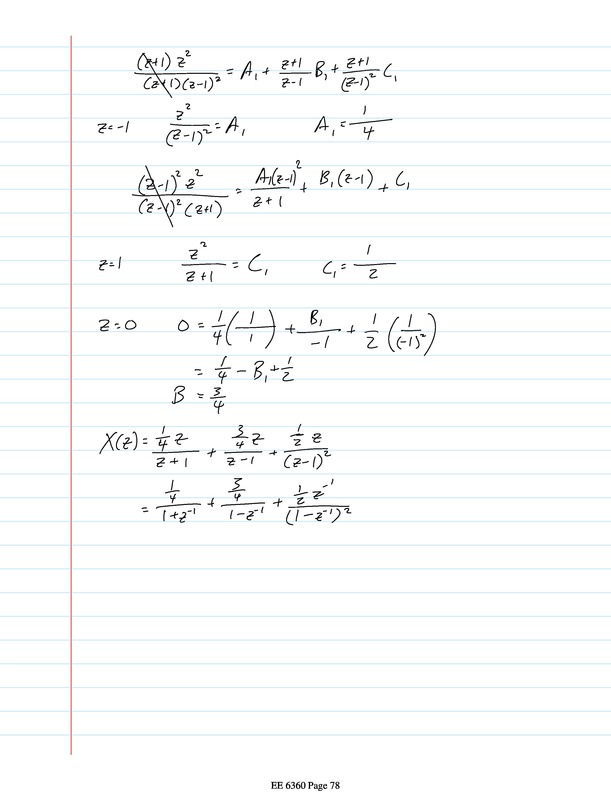 (z+1) z² / (z+1)(z-1)² = A₁ + z+1 / z-1 B₁ + z+1 / (z-1)² C₁
z=-1 z² / (z-1)² = A₁ A₁ = 1/4
(z-1)² z² / (z-1)² (z+1) = A₁(z-1)² / z+1 + B₁(z-1) + C₁
z=1 z² / z+1 = C₁ C₁ = 1/2
z=0 0 = 1/4 (1/1) + B₁/-1 + 1/2 (1/(-1)²)
= 1/4 - B₁ + 1/2
B = 3/4
X(z) = 1/4 z / z+1 + 3/4 z / z-1 + 1/2 z / (z-1)²
= 1/4 / 1+z⁻¹ + 3/4 / 1-z⁻¹ + 1/2 z⁻¹ / (1-z⁻¹)²
EE 6360 Page 78